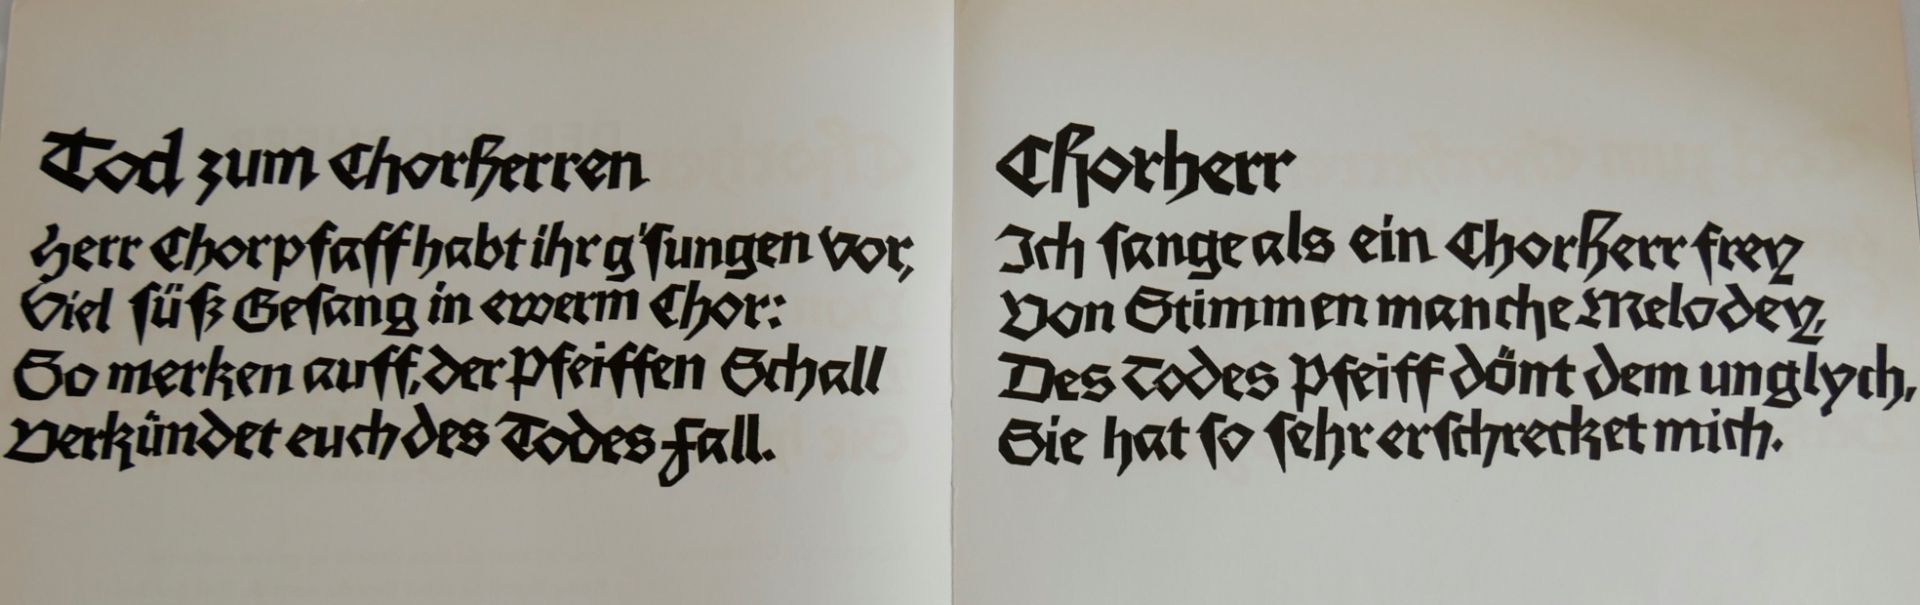 Tod zum Chorherren
Herr Chorpfaff habt ihr g'sungen vor,
Viel süß Gesang in ewerm Chor:
So merken auff, der Pfeiffen Schall
Verkündet euch des Todes Fall.
Chorherr
Ich sange als ein Chorherr frey
Von Stimmen manche Melodey,
Des Todes Pfeiff dönt dem unglych,
Sie hat so sehr erschrecket mich.